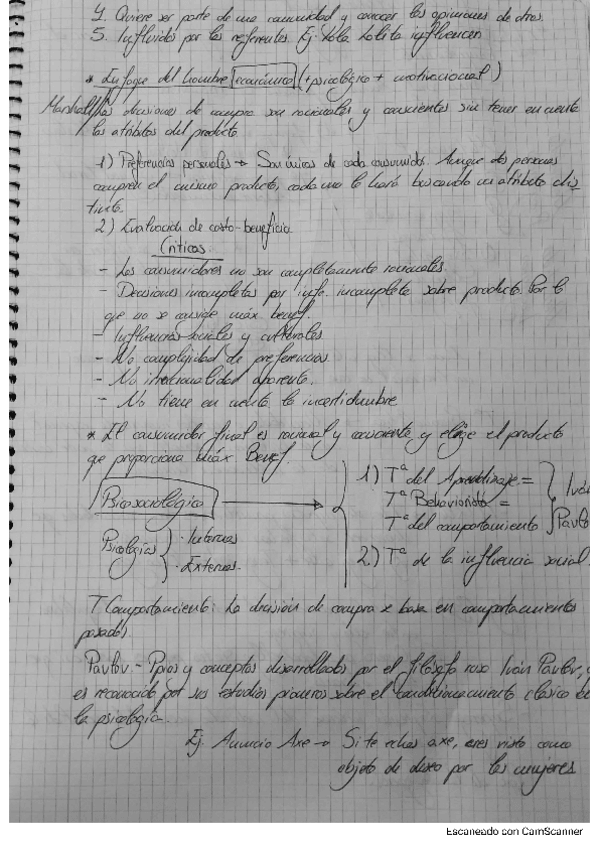 4. Quiere ser parte de una comunidad y conocer las opiniones de otros.
5. Influidos por los referentes. Ej: Lola Lolita influencer
* Enfoque del hombre económico (+psicológico + motivacional)
Marshall las decisiones de compra son racionales y conscientes sin tener en cuenta
los atributos del producto
1) Preferencias personales → Son únicas de cada consumidor. Aunque dos personas
compren el mismo producto, cada uno lo hará buscando un atributo dis
tinto.
2) Evaluación de costo-beneficio
Críticas
- Los consumidores no son completamente racionales.
- Decisiones incompletas por info. incompleta sobre producto. Por lo
qe no se consige máx. benef.
- Influencias sociales y culturales
- No complejidad de preferencias
- No irracionalidad aparente.
- No tiene en cuenta la incertidumbre
* El consumidor final es racional y consciente, y elige el producto
qe proporciona máx Benef.
Psicosociológico →
1) Tª del Aprendizaje =
Tª Behaviorista =
Tª del comportamiento
Iván
Pavlo
2) Tª de la influencia social
Psicologías
· Internas
· Externas.
T Comportamiento: La decisión de compra se basa en comportamientos
pasados
Pavlov.- Ppios y conceptos desarrollados por el filósofo ruso Iván Pavlov, y
es reconocido por sus estudios pioneros sobre el condicionamiento clásico en
la psicología.
Ej. Anuncio Axe → Si te echas axe, eres visto como
objeto de deseo por las mujeres
Escaneado con CamScanner